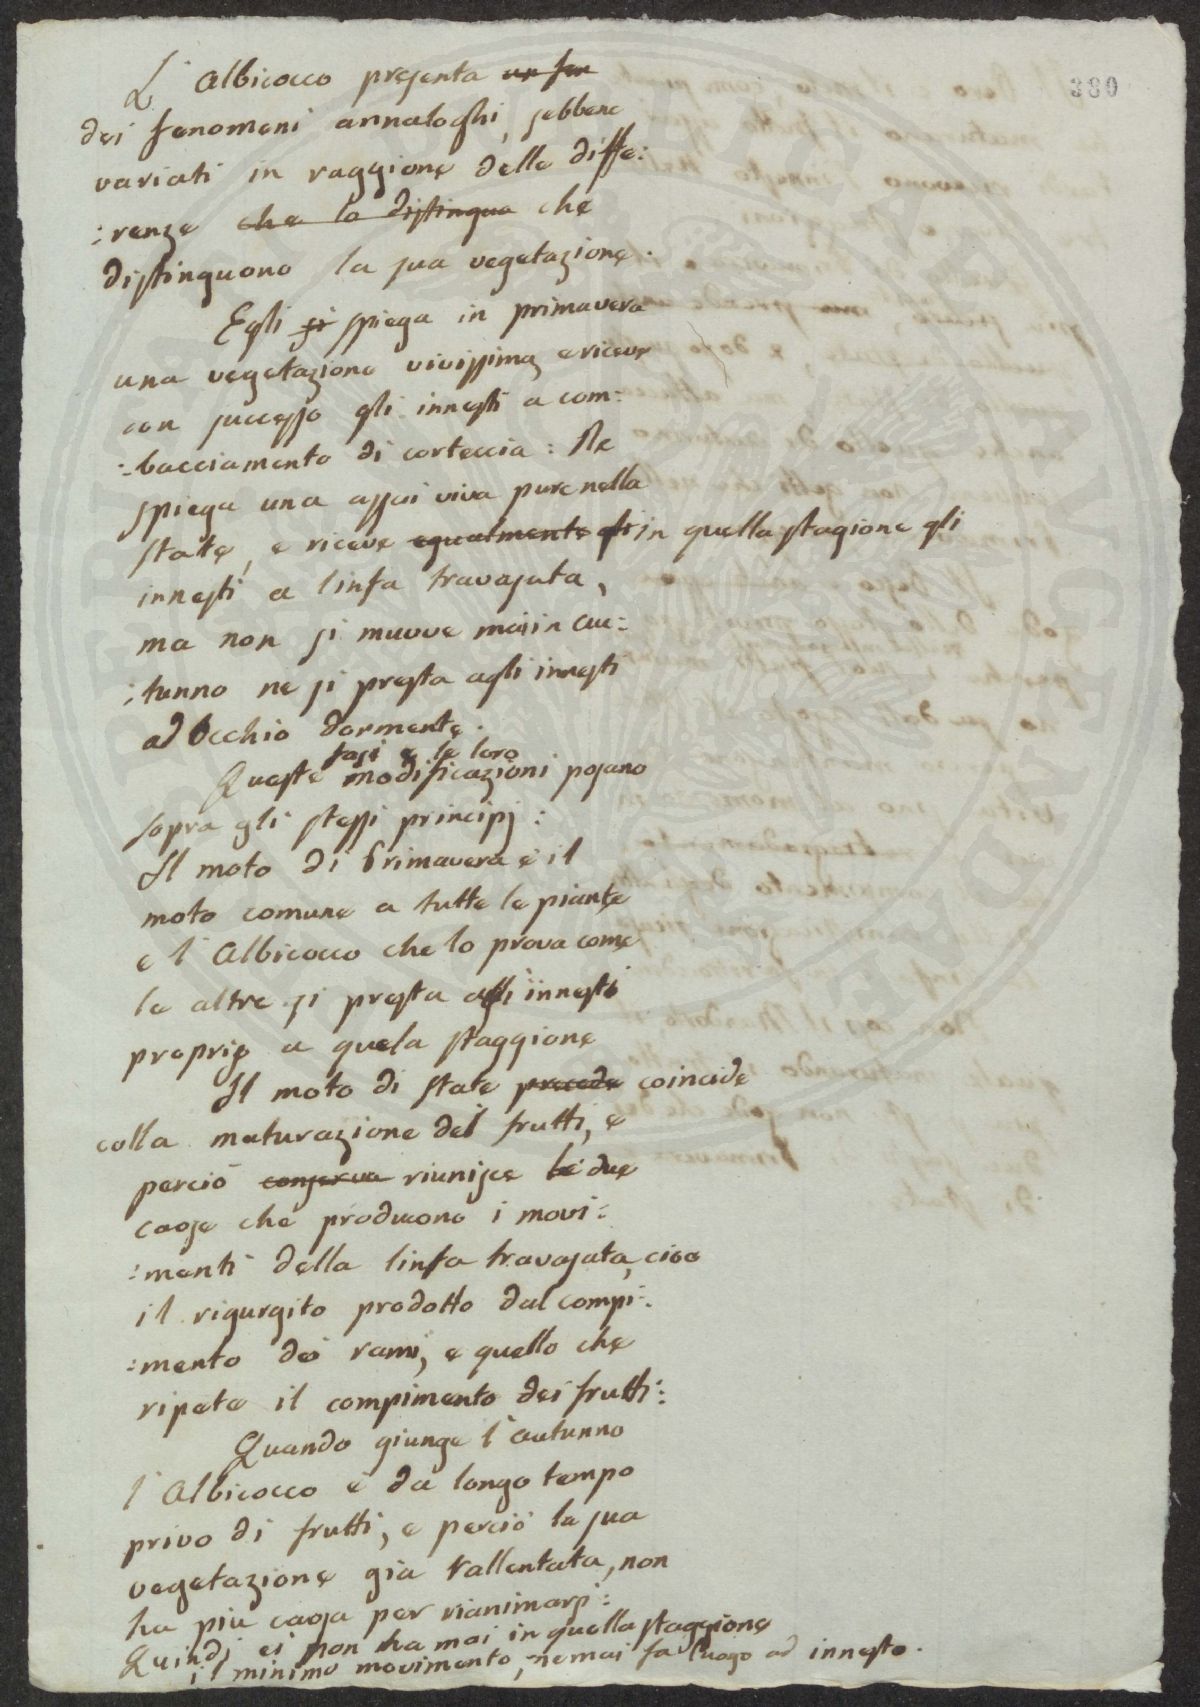 380
L'Albicocco presenta un fen
dei fenomeni annaloghi, sebbene
variati in raggione delle diffe:
:renze che la distingua che
distinguono la sua vegetazione.
Egli si spiega in primavera
una vegetazione vivissima, e riceve
con successo gli innesti a com:
:bacciamento di corteccia: Ne
spiega una assai viva pure nella
state, e riceve egualmente gli in quella stagione gli
innesti a linfa travasata,
ma non si muove mai in au:
:tunno ne si presta agli innesti
ad Occhio dormente.
fasi e le loro
Queste modificazioni posano
sopra gli stessi principj:
Il moto di Primavera è il
moto comune a tutte le piante
e l'Albicocco che lo prova come
le altre si presta agli innesti
proprie a quela staggione
Il moto di state precede coincide
colla maturazione dei frutti, e
perciò conserva riunisce le due
caose che producono i movi:
:menti della linfa travasata, cioè
il rigurgito prodotto dal compi:
:mento dei rami, e quello che
ripete il compimento dei frutti:
Quando giunge l'autunno
l'Albicocco è da longo tempo
privo di frutti, e perciò la sua
vegetazione già rallentata, non
ha più caosa per rianimarsi:
Quindi ei non ha mai in quella staggione
il minimo movimento, ne mai fa luogo ad innesto.